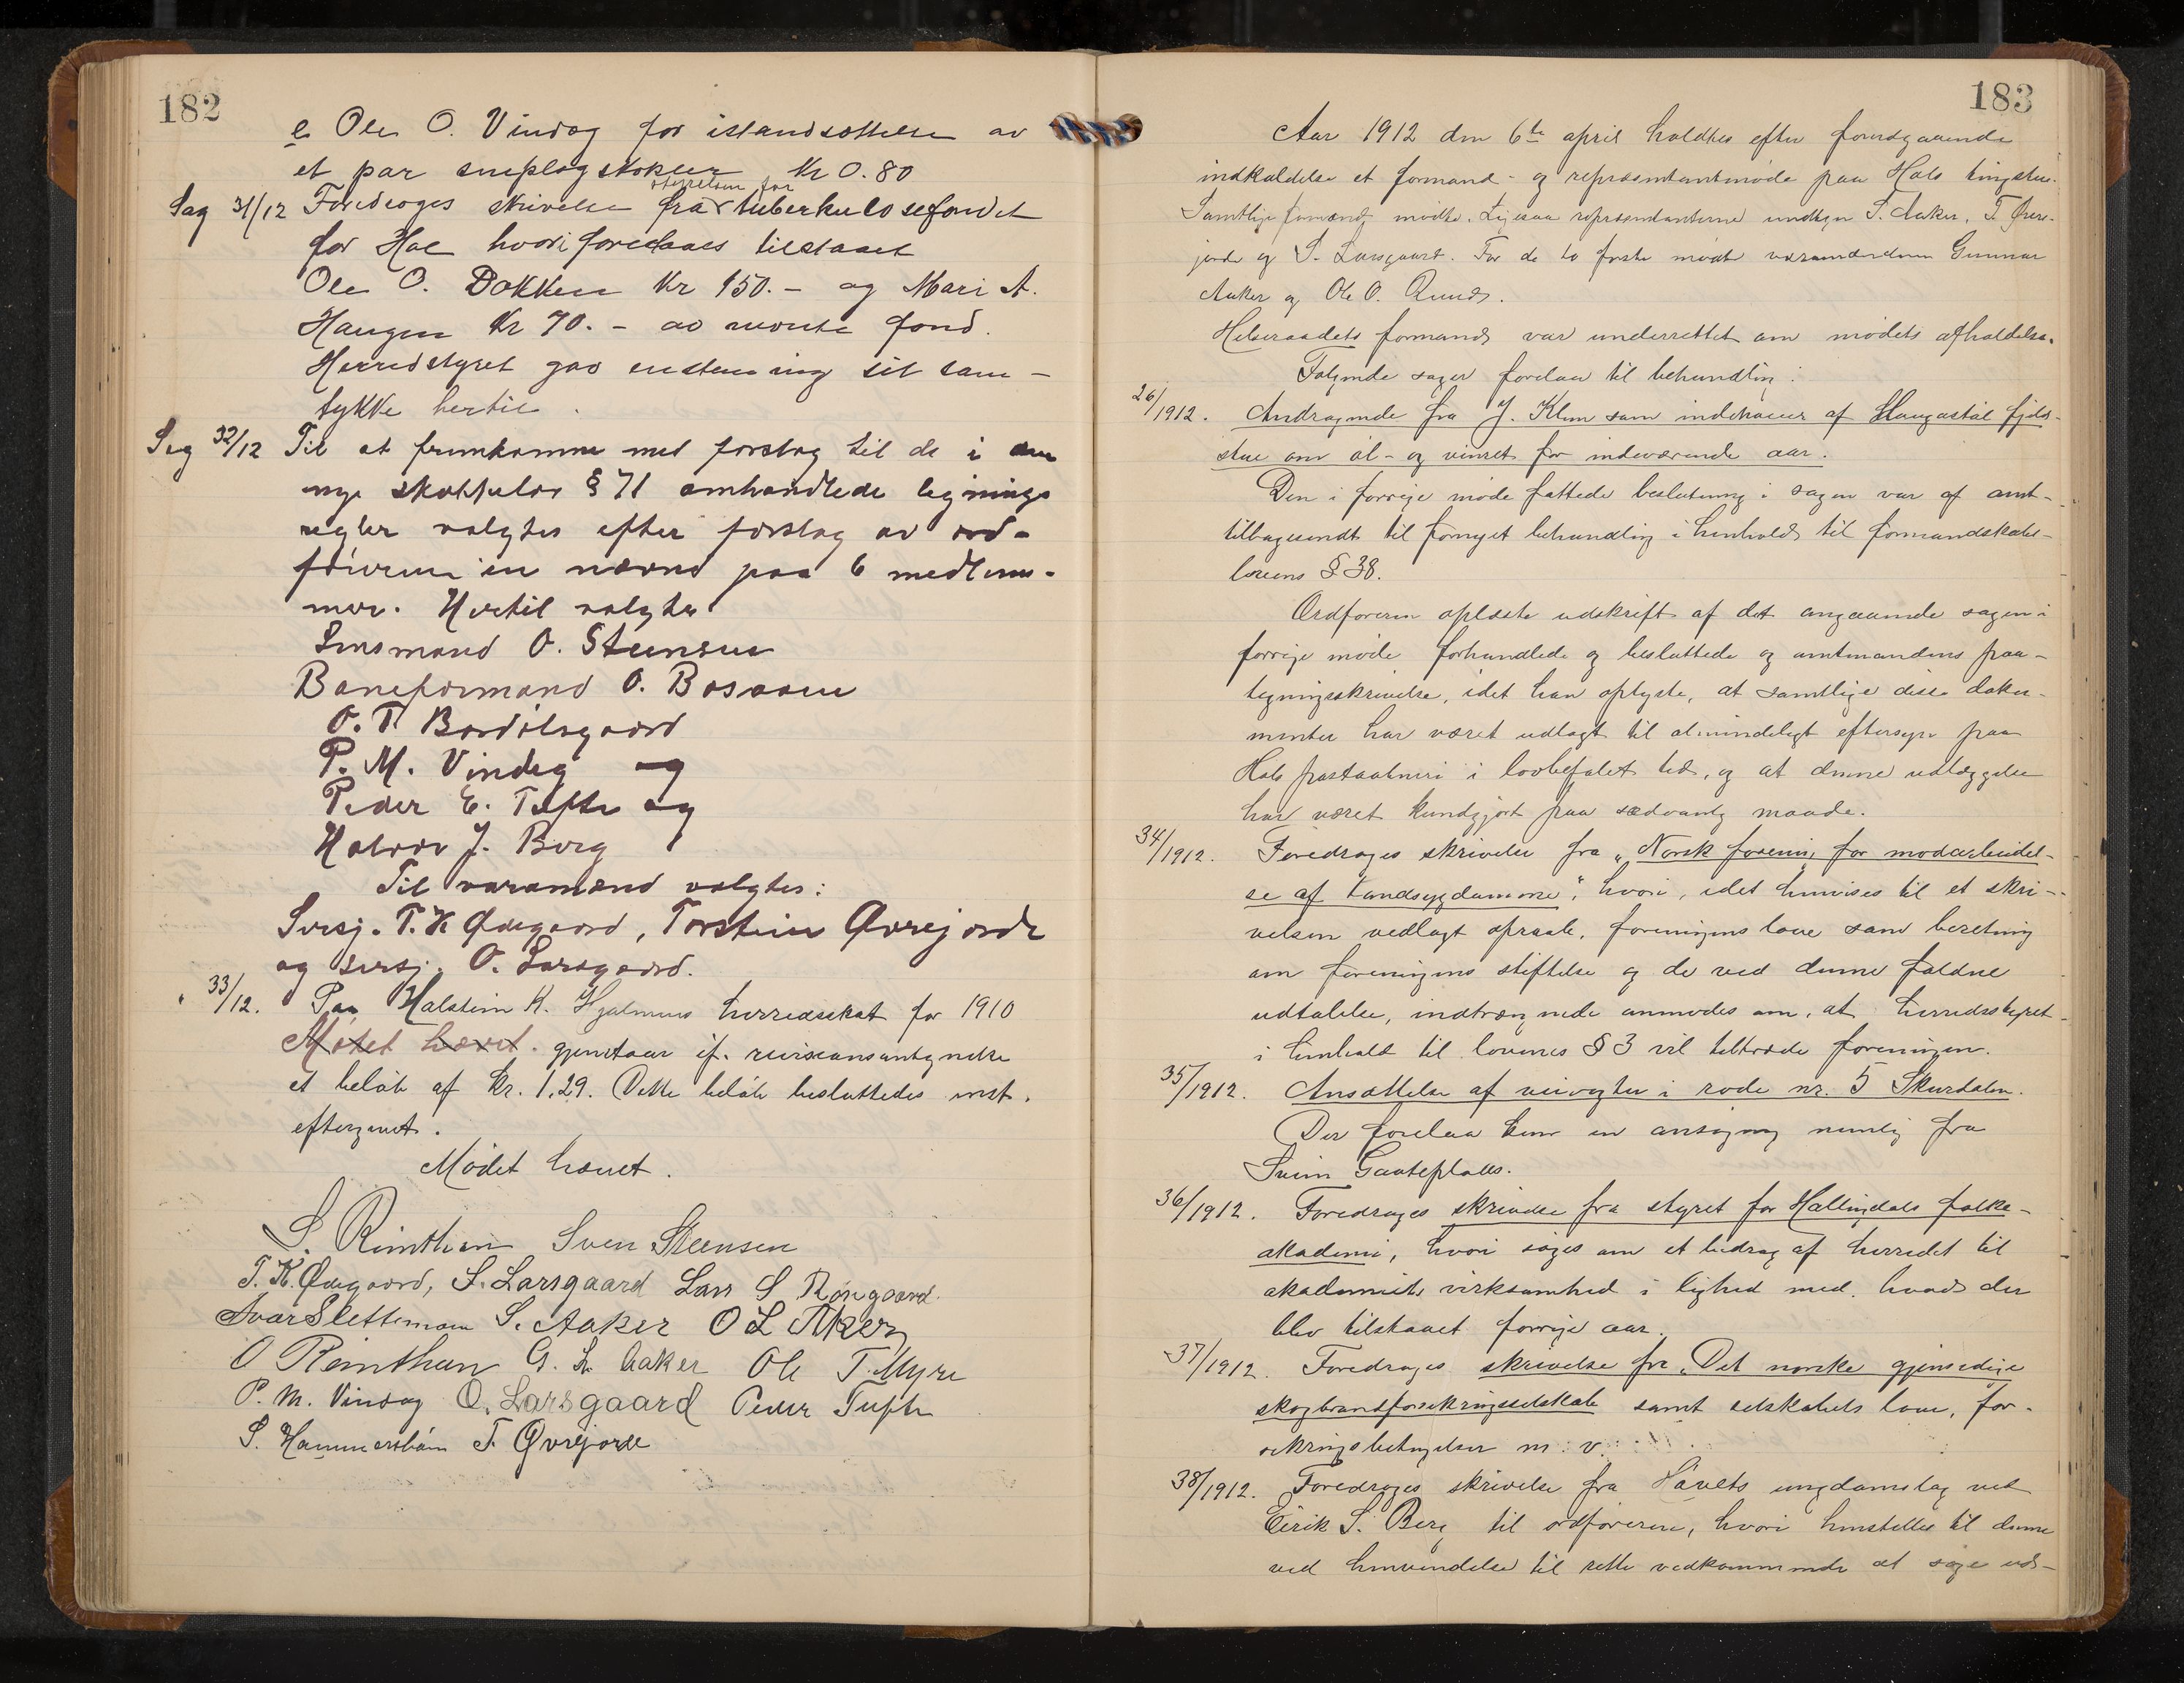 182
e Ole O. Vindeg for istandsættelse av
et par sneplogstokker Kr 0.80
Sag 31/12 Foredroges skrivelse fra styrelsen for tuberkulosefondet
for Hol hvori foreslaaes tilstaaet
Ole O. Dokken Kr 150.- og Mari A.
Haugen Kr 70.- av nevnte fond.
Herredstyret gav enstemmig sit sam-
tykke hertil.
Sag 32/12 Til at fremkomme med forslag til de i den
nye skattelov § 71 omhandlede lignings
regler valgtes efter forslag av ord-
føreren en nævnd paa 6 medlem-
mer. Hertil valgtes
Lensmand O. Steensen
Baneformand O. Bosaaen
O. T. Bardølsgaard
P. M. Vindeg og
Peder E. Tufte og
Halvor J. Berg
Til varamænd valgtes:
Sersj. T. K Ødegaard, Torstein Øvrejorde
og sersj. O. Larsgaard.
" 33/12. Paa Halstein K. Hjelmens herredsskat for 1910
Møtet hævet. gjenstaar if. revisionsantegnelse
et beløb af kr. 1,29. Dette beløb besluttedes enst.
eftergivet.
Mødet hævet.
S. Reinthon Sven Steensen
T. K. Ødegaard, S. Larsgaard Lars S Røngaard.
Ivar Slettemoen S. Aaker O L Aker
O Reinthon G. L. Aaker Ole T. Myre
P. M. Vindeg O. Larsgaard Peder Tufte
S. Hammersbøin T. Øvrejorde
183
Aar 1912 den 6te april holdtes efter foregaaende
indkaldelse et formand- og repræsentantmøde paa Hols tingstue.
Samtlige formænd mødte. Ligesaa repræsentanterne undtagen S. Aaker, T. Øvre-
jorde og S. Larsgaard. For de to første mødte varamændene Gunnar
Aaker og Ole O. Ruud.
Helseraadets formand var underrettet om mødets afholdelse.
Følgende sager forelaa til behandling:
26/1912. Andragende fra J. Klem som indehaver af Haugastøl fjeld-
stue om øl- og vinret for indeværende aar.
Den i forrige møde fattede beslutning i sagen var af amt-
tilbagesendt til fornyet behandling i henhold til formandskabs-
lovens § 38.
Ordføreren oplæste udskrift af det angaaende sagen i
forrige møde forhandlede og besluttede og amtmandens paa-
tegningsskrivelse, idet han oplyste, at samtlige disse doku-
menter har været udlagt til almindeligt eftersyn paa
Hols postaabneri i lovbefalet tid, og at denne udlæggelse
har været kundgjort paa sædvanlig maade.
34/1912. Foredroges skrivelse fra "Norsk forening for modarbeidel-
se af tandsygdomme", hvori, idet henvises til et skri-
velsen vedlagt opraab, foreningens love samt beretning
om foreningens stiftelse og de ved denne faldne
udtalelse, indtrængende anmodes om, at herredsstyret
i henhold til lovenes § 3 vil tiltræde foreningen.
35/1912. Ansættelse af veivogter i rode nr. 5 Skurdalen.
Der forelaa kun en ansøgning nemlig fra
Svein Gauteplads.
36/1912. Foredroges skrivelse fra styret for Hallingdals folke-
akademi, hvori søges om et bidrag af herredet til
akademiets virksomhed i lighed med, hvad der
blev tilstaaet forrige aar.
37/1912. Foredroges skrivelse fra "Det norske gjensidige
skogbrandforsikringsselskab samt selskabets love, for-
sikringsbetingelser m. v.
38/1912. Foredroges skrivelse fra Høvets ungdomslag ved
Eirik S. Berg til ordføreren, hvori henstilles til denne
ved henvendelse til rette vedkommende at søge ud-